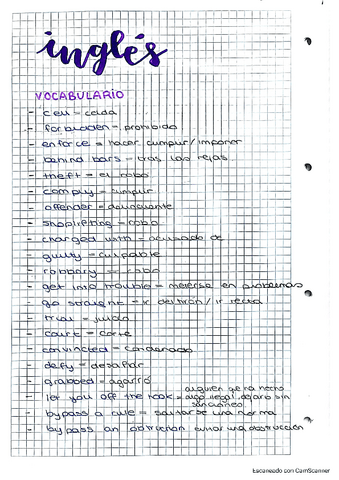 inglés
VOCABULARIO
- cell = celda
- forbidden = prohibido
- enforce = hacer cumplir / imponer
- behind bars = tras las rejas
- theft = el robo
- comply = cumplir
- offender = delincuente
- shoplifting = robo
- charged with = acusado de
- guilty = culpable
- robbery = robo
- get into trouble = meterse en problemas
- go straight = ir / ir recta
- trial = juicio
- court = corte
- convicted = condenado
- defy = desafiar
- grabbed = agarró
alguien que ha hecho
- let you off the hook = algo ilegal dejarlo sin
- bypass a rule = saltarse una norma
- bypass an obstruction
Escaneado con CamScanner